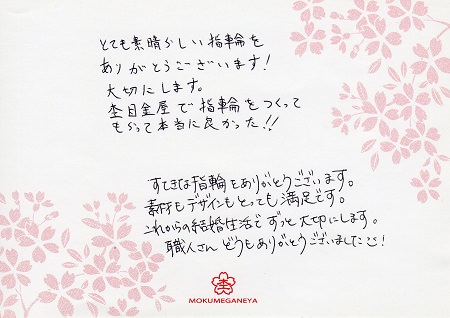 とても素晴らしい指輪を
ありがとうございます!
大切にします。
杢目金屋で指輪をつくって
もらって本当に良かった!!
すてきな指輪をありがとうございます。
素材もデザインもとっても満足です。
これからの結婚生活でずっと大切にします。
職人さんどうもありがとうございました!
MOKUMEGANEYA